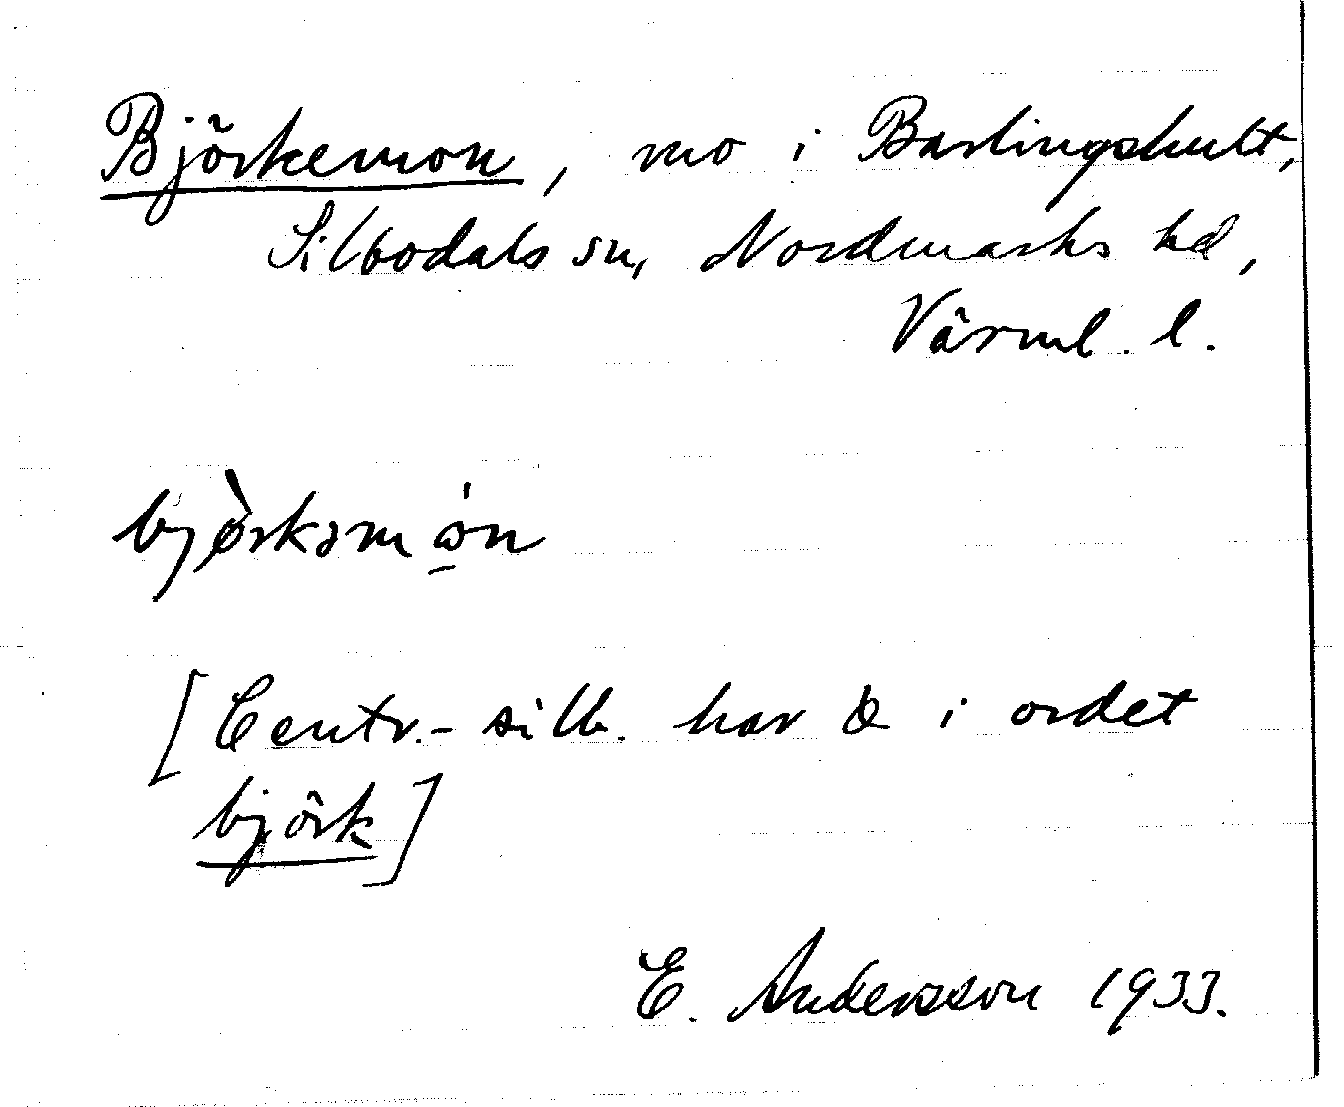 Björkemon, mo i Barlingshult,
Silbodals sn, Nordmarks hd,
Värml. l.
bjørkəmòn
[Centr.-silb. har i ordet
björk]
E. Andersson 1933.